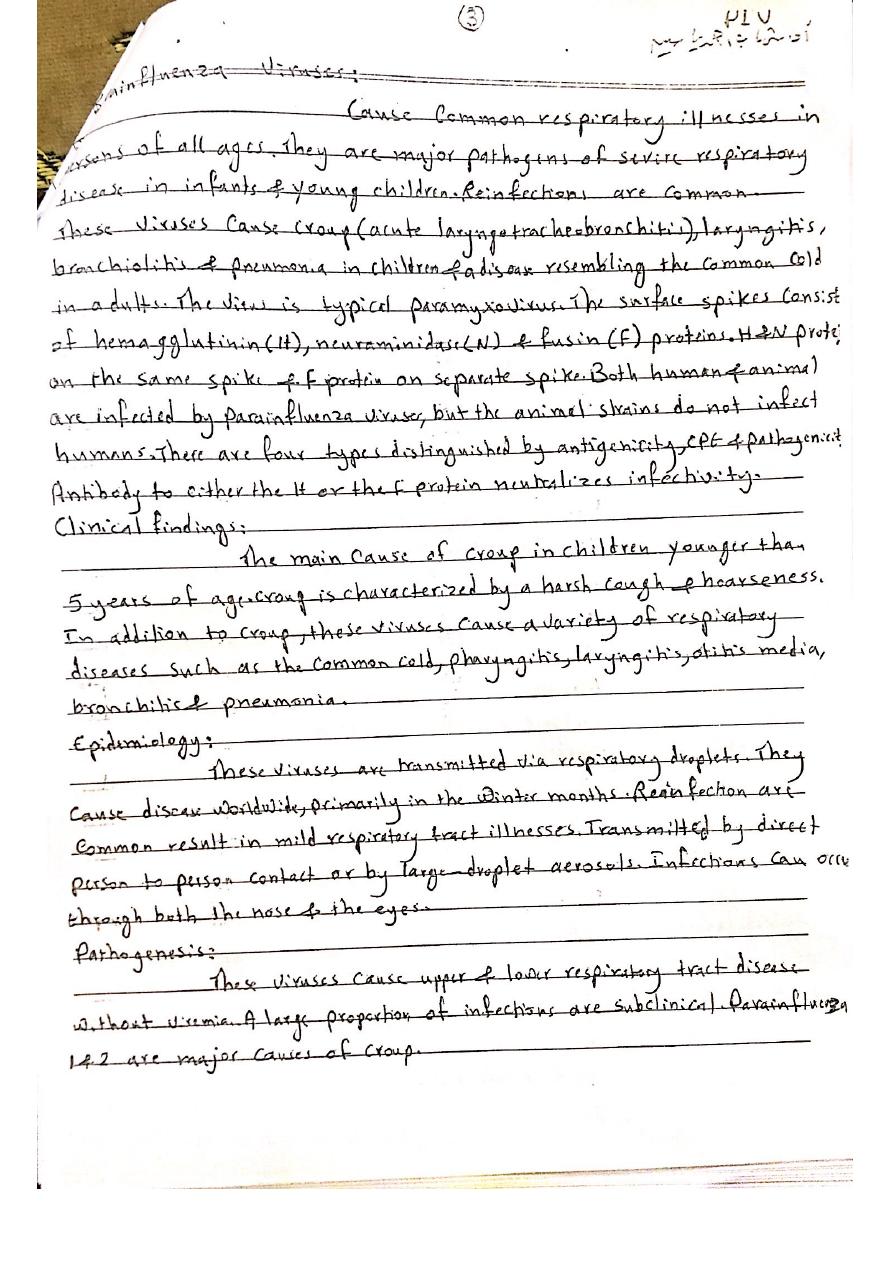 3
rainfluenza Viruses:
Cause Common respiratory illnesses in
ersons of all ages. They are major pathogens of sevire respiratory
disease in infants & young children. Reinfections are common
These Viruses Cause Croup (acute laryngotracheobronchitis), laryngitis,
bronchiolitis & pneumonia in children & a disease resembling the Common Cold
in adults. The virus is typical paramyxovirus. The surface spikes Consist
of hemagglutinin (H), neuraminidase (N) & fusin (F) proteins. H & N protei
on the same spike & F protein on separate spike. Both human & animal
are infected by Parainfluenza viruses, but the animal strains do not infect
humans. There are four types distinguished by antigenicity, CPE & pathogenicit
Antibody to either the H or the F protein neutralizes infectivity.
Clinical findings:
The main Cause of croup in children younger than
5 years of age. Croup is characterized by a harsh cough & hoarseness.
In addition to Croup, these viruses Cause a variety of respiratory
diseases such as the Common cold, pharyngitis, laryngitis, otitis media,
bronchitis & pneumonia.
Epidemiology:
These viruses are transmitted via respiratory droplets. They
Cause disease worldwide, primarily in the winter months. Reinfection are
Common result in mild respiratory tract illnesses. Transmitted by direct
person to person contact or by large-droplet aerosols. Infections Can occu
through both the nose & the eyes.
Pathogenesis:
These viruses cause upper & lower respiratory tract disease
without viremia. A large proportion of infections are subclinical. Parainfluenza
1 & 2 are major Causes of Croup.